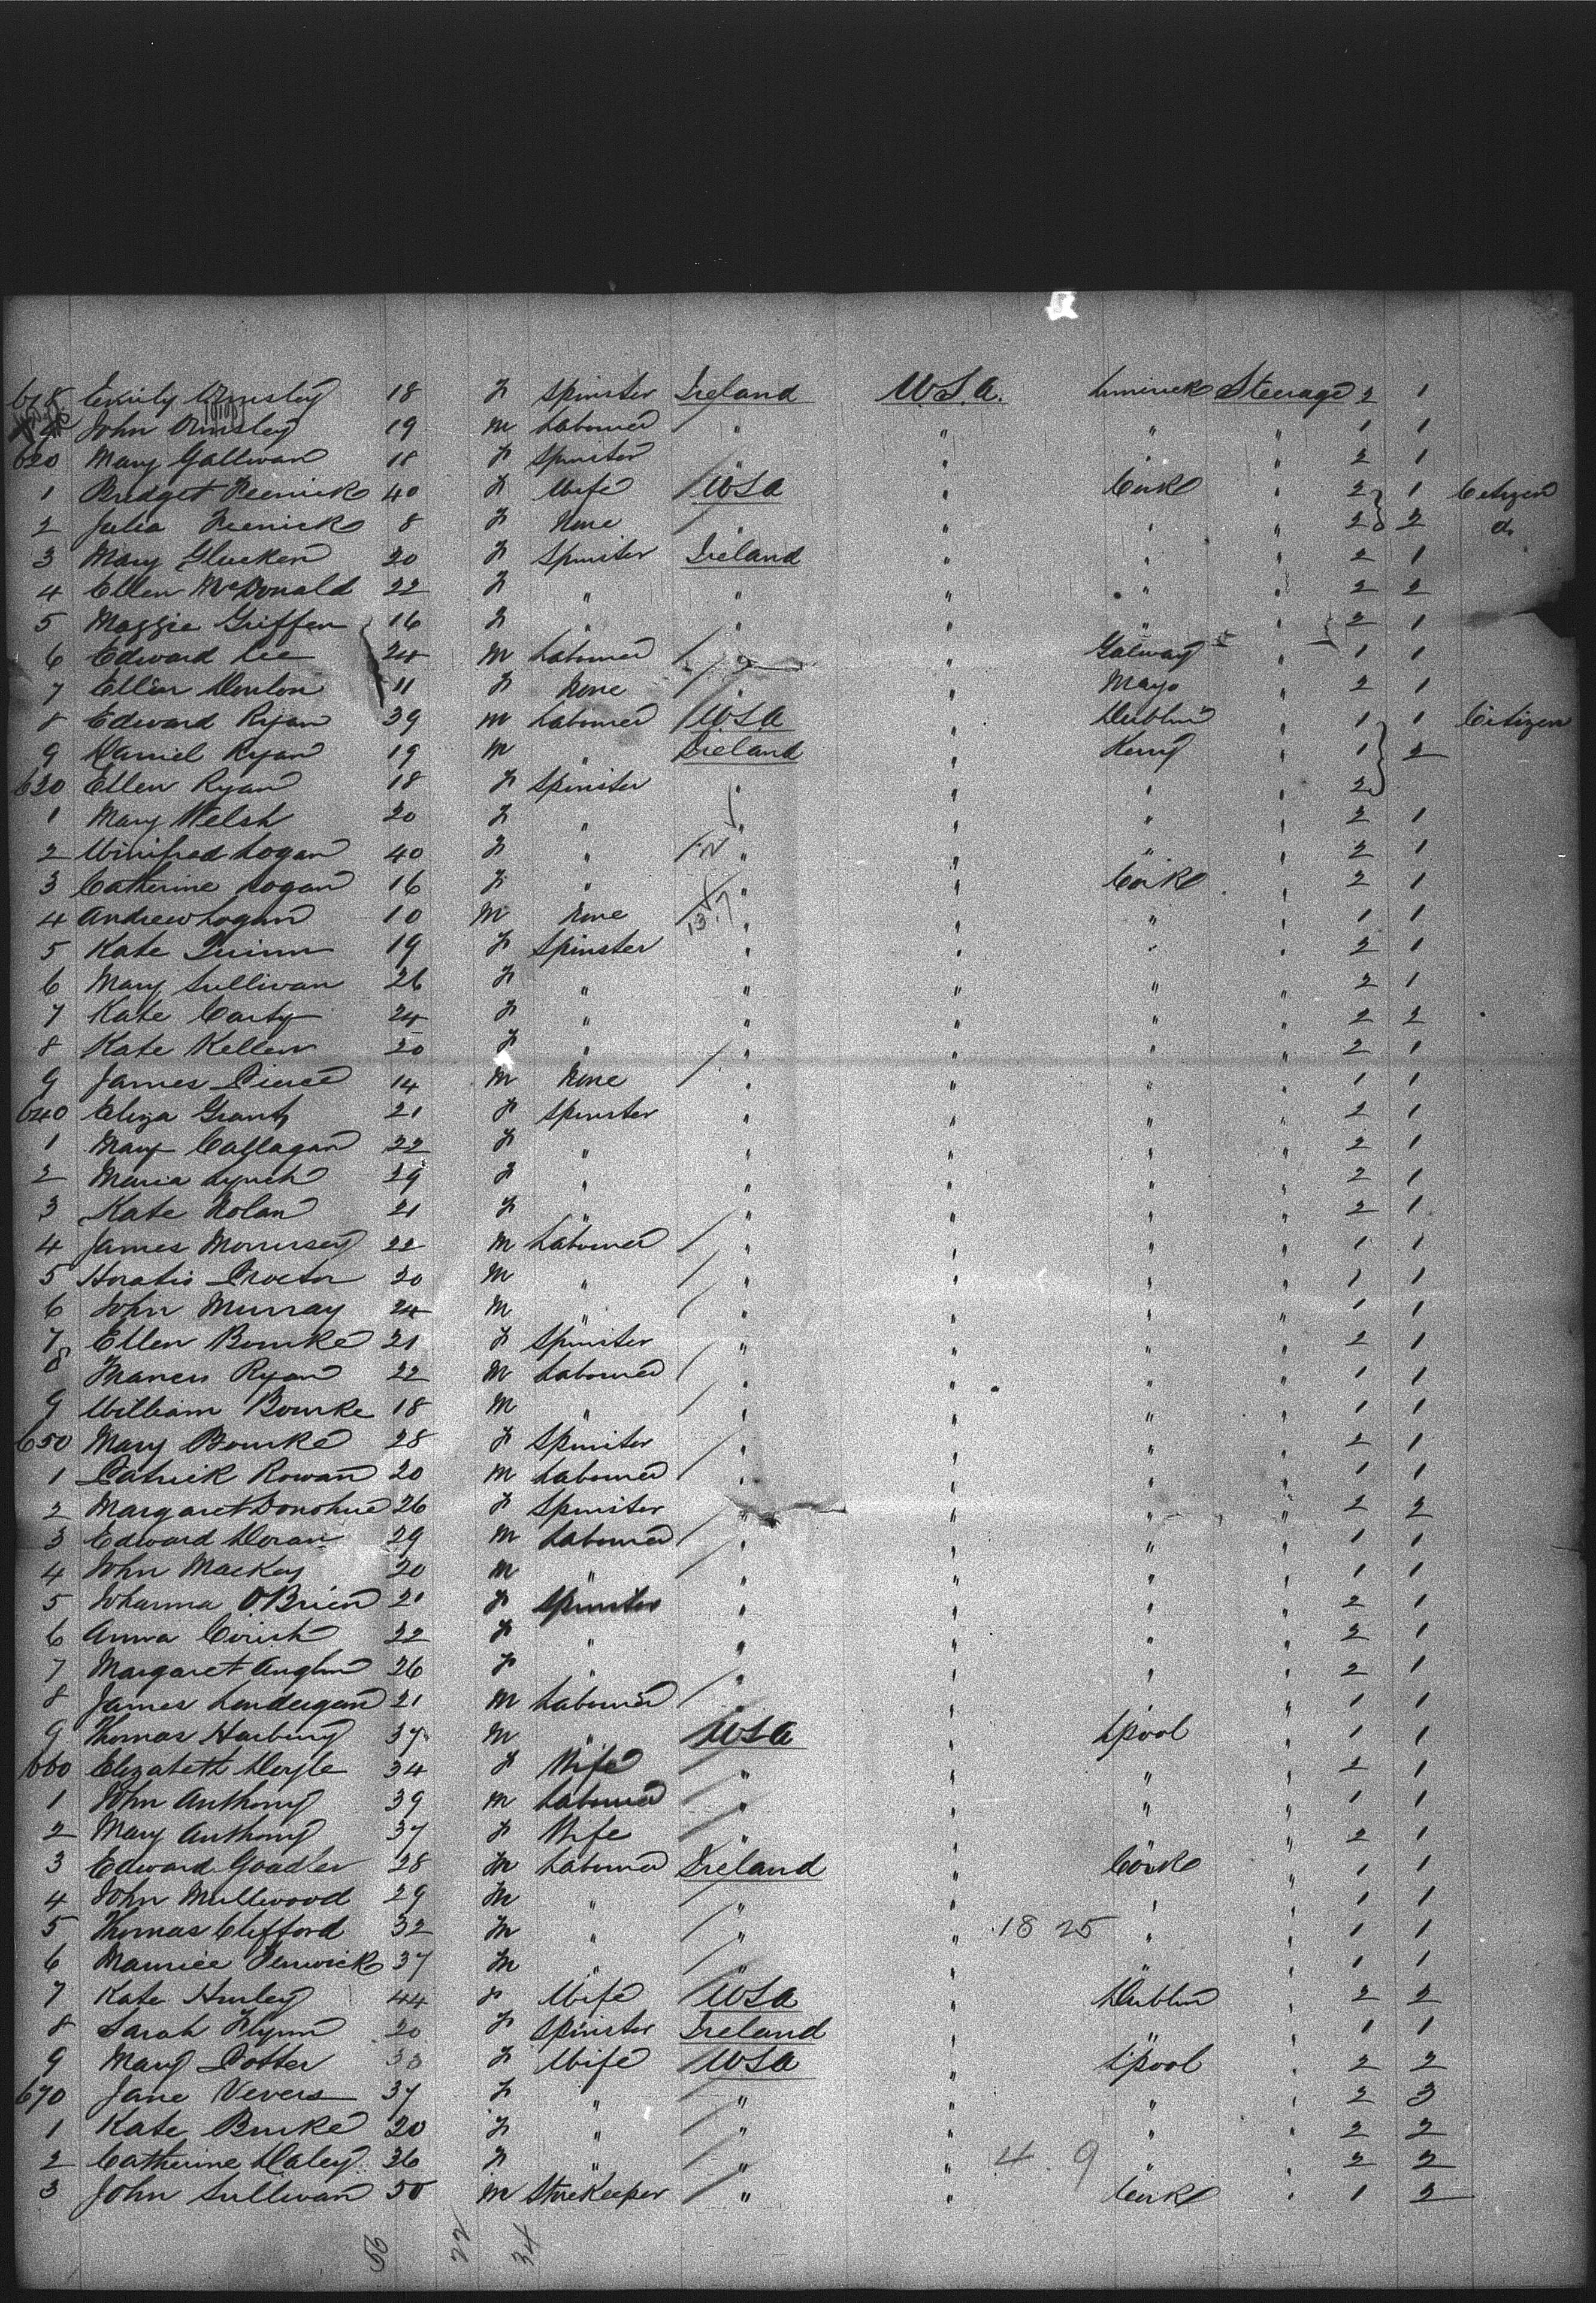 618 Emily Ormsley 18 F Spinster Ireland U.S.A. Limerick Steerage 2 1
John Ormsley 19 M Labourer " " " " 1 1
620 Mary Gallivan 18 F Spinster " " " 2 1
1 Bridget 40 F Wife USA " Cork " 2 1 Citizen
2 Julia 8 F None " " " " 2 2 do
3 Mary Glucken 20 F Spinster Ireland " " " 2 1
4 Ellen McDonald 22 F " " " " " 2 2
5 Maggie Griffen 16 F " " " " " 2 1
6 Edward Lee 24 M Labourer " " Galway " 1 1
7 Ellen Donlon 11 F None " " Mayo " 2 1
8 Edward Ryan 39 M Labourer USA " Dublin " 1 1 Citizen
9 Daniel Ryan 19 M " Ireland " Kerry " 1 2
630 Ellen Ryan 18 F Spinster " " " " 2
1 Mary Welsh 20 F " " " " " 2 1
2 Winifred Logan 40 F " " " " " 2 1
3 Catherine Logan 16 F " " " Cork " 2 1
4 Andrew Logan 10 M None " " " " 1 1
5 Kate Quinn 19 F Spinster " " " " 2 1
6 Mary Sullivan 26 F " " " " " 2 1
7 Kate Carty 24 F " " " " " 2 2
8 Kate Keller 20 F " " " " " 2 1
9 James Pierce 14 M None " " " " 1 1
640 Eliza Grant 21 F Spinster " " " " 2 1
1 Mary Callagan 22 F " " " " " 2 1
2 Maria Lynch 29 F " " " " " 2 1
3 Kate Nolan 21 F " " " " " 2 1
4 James Morrisey 22 M Labourer " " " " 1 1
5 Horatio Proctor 20 M " " " " " 1 1
6 John Murray 24 M " " " " " 1 1
7 Ellen Bourke 21 F Spinster " " " " 2 1
8 Francis Ryan 22 M Labourer " " " " 1 1
9 William Bourke 18 M " " " " " 1 1
650 Mary Bourke 28 F Spinster " " " " 2 1
1 Patrick Rowan 20 M Labourer " " " " 1 1
2 Margaret Donohue 26 F Spinster " " " " 2 2
3 Edward Doran 29 M Labourer " " " " 1 1
4 John Mackey 20 M " " " " " 1 1
5 Johanna O'Brien 21 F Spinster " " " " 2 1
6 Anna Corish 22 F " " " " " 2 1
7 Margaret Anglin 26 F " " " " " 2 1
8 James Londergan 21 M Labourer " " " " 1 1
9 Thomas Harbury 37 M " USA " Lpool " 1 1
660 Elizabeth Doyle 34 F Wife " " " " 2 1
1 John Anthony 39 M Labourer " " " " 1 1
2 Mary Anthony 37 F Wife " " " " 2 1
3 Edward Goadler 28 M Labourer Ireland " Cork " 1 1
4 John Mullwood 29 M " " " " " 1 1
5 Thomas Clifford 32 M " " " 18 25 " " 1 1
6 Maurice Fenwick 37 M " " " " " 1 1
7 Kate Hurley 44 F Wife USA " Dublin " 2 2
8 Sarah Flynn 20 F Spinster Ireland " " " 1 1
9 Mary Potter 33 F Wife USA " Lpool " 2 2
670 Jane Vevers 37 F " " " " " 2 3
1 Kate Burke 20 F " " " " " 2 2
2 Catherine Daley 36 F " " " 4 9 " " 2 2
3 John Sullivan 50 M Storekeeper " " Cork " 1 2
56 22 34